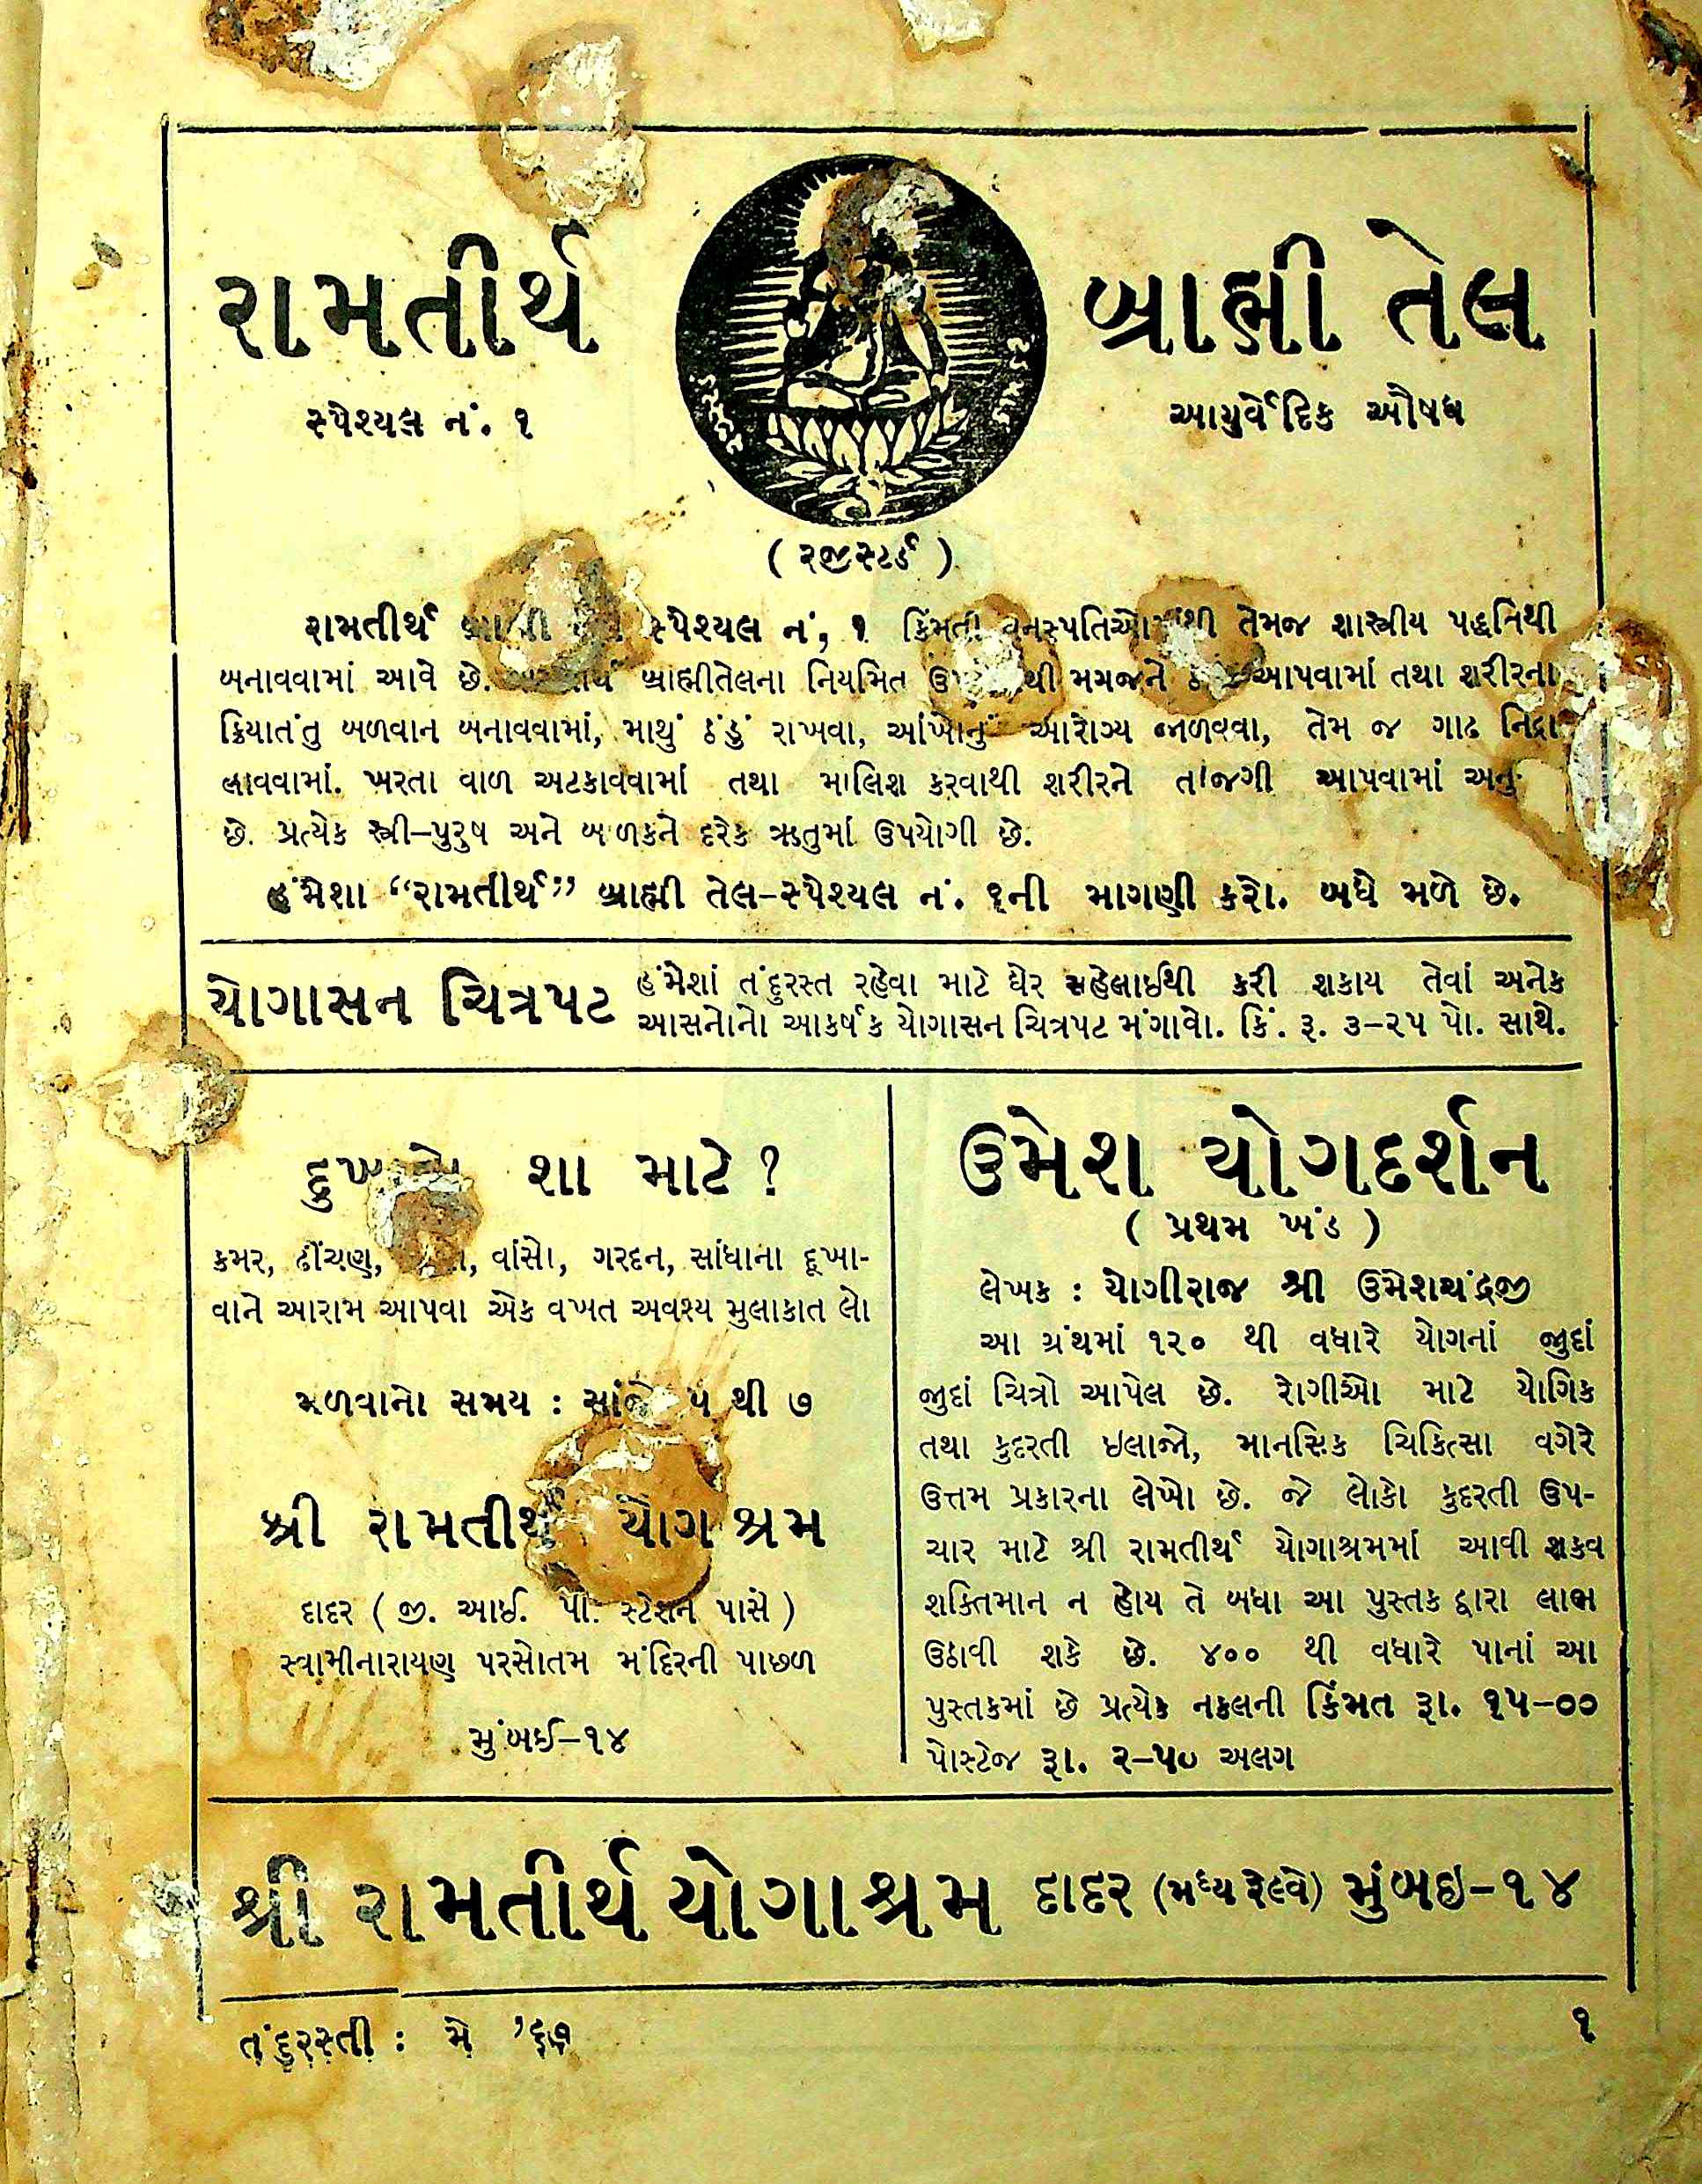 રામતીર્થ
બ્રાહ્મી તેલ
સ્પેશ્યલ નં. ૧
આયુર્વેદિક ઔષધ
( રજીસ્ટર્ડ )
રામતીર્થ સ્પેશ્યલ નં, ૧ કિંમતી વનસ્પતિઓમાંથી તેમજ શાસ્ત્રીય પદ્ધતિથી
બનાવવામાં આવે છે. બ્રાહ્મીતેલના નિયમિત મગજને આપવામાં તથા શરીરના
ક્રિયાતંતુ બળવાન બનાવવામાં, માથું ઠંડું રાખવા, આંખોનું આરોગ્ય જાળવવા, તેમ જ ગાઢ નિદ્રા
લાવવામાં. ખરતા વાળ અટકાવવામાં તથા માલિશ કરવાથી શરીરને તાજગી આપવામાં
છે. પ્રત્યેક સ્ત્રી–પુરુષ અને બાળકને દરેક ઋતુમાં ઉપયોગી છે.
હંમેશા “રામતીર્થ” બ્રાહ્મી તેલ–સ્પેશ્યલ નં. ૧ની માગણી કરો. બધે મળે છે.
યોગાસન ચિત્રપટ
હંમેશાં તંદુરસ્ત રહેવા માટે ઘેર સહેલાઈથી કરી શકાય તેવાં અનેક
આસનોનો આકર્ષક યોગાસન ચિત્રપટ મંગાવો. કિં. રૂ. ૩–૨૫ પો. સાથે.
શા માટે ?
કમર, ઢીંચણ, વાંસો, ગરદન, સાંધાના દૂખા-
વાને આરામ આપવા એક વખત અવશ્ય મુલાકાત લો
મળવાનો સમય : સાંજે ૫ થી ૭
શ્રી રામતીર્થ યોગ શ્રમ
દાદર ( જી. આઈ. પી. સ્ટેશન પાસે )
સ્વામીનારાયણ પરસોતમ મંદિરની પાછળ
મુંબઈ–૧૪
ઉમેશ યોગદર્શન
( પ્રથમ ખંડ )
લેખક : યોગીરાજ શ્રી ઉમેશચંદ્રજી
આ ગ્રંથમાં ૧૨૦ થી વધારે યોગનાં જુદાં
જુદાં ચિત્રો આપેલ છે. રોગીઓ માટે યોગિક
તથા કુદરતી ઇલાજો, માનસિક ચિકિત્સા વગેરે
ઉત્તમ પ્રકારના લેખો છે. જે લોકો કુદરતી ઉપ-
ચાર માટે શ્રી રામતીર્થ યોગાશ્રમમાં આવી શકવ
શક્તિમાન ન હોય તે બધા આ પુસ્તક દ્વારા લાભ
ઉઠાવી શકે છે. ૪૦૦ થી વધારે પાનાં આ
પુસ્તકમાં છે પ્રત્યેક નકલની કિંમત રૂા. ૧૫–૦૦
પોસ્ટેજ રૂા. ૨–૫૦ અલગ
શ્રી રામતીર્થ યોગાશ્રમ દાદર (મધ્ય રેલ્વે) મુંબઇ–૧૪
તંદુરસ્તી : મે ’૬૭
૧